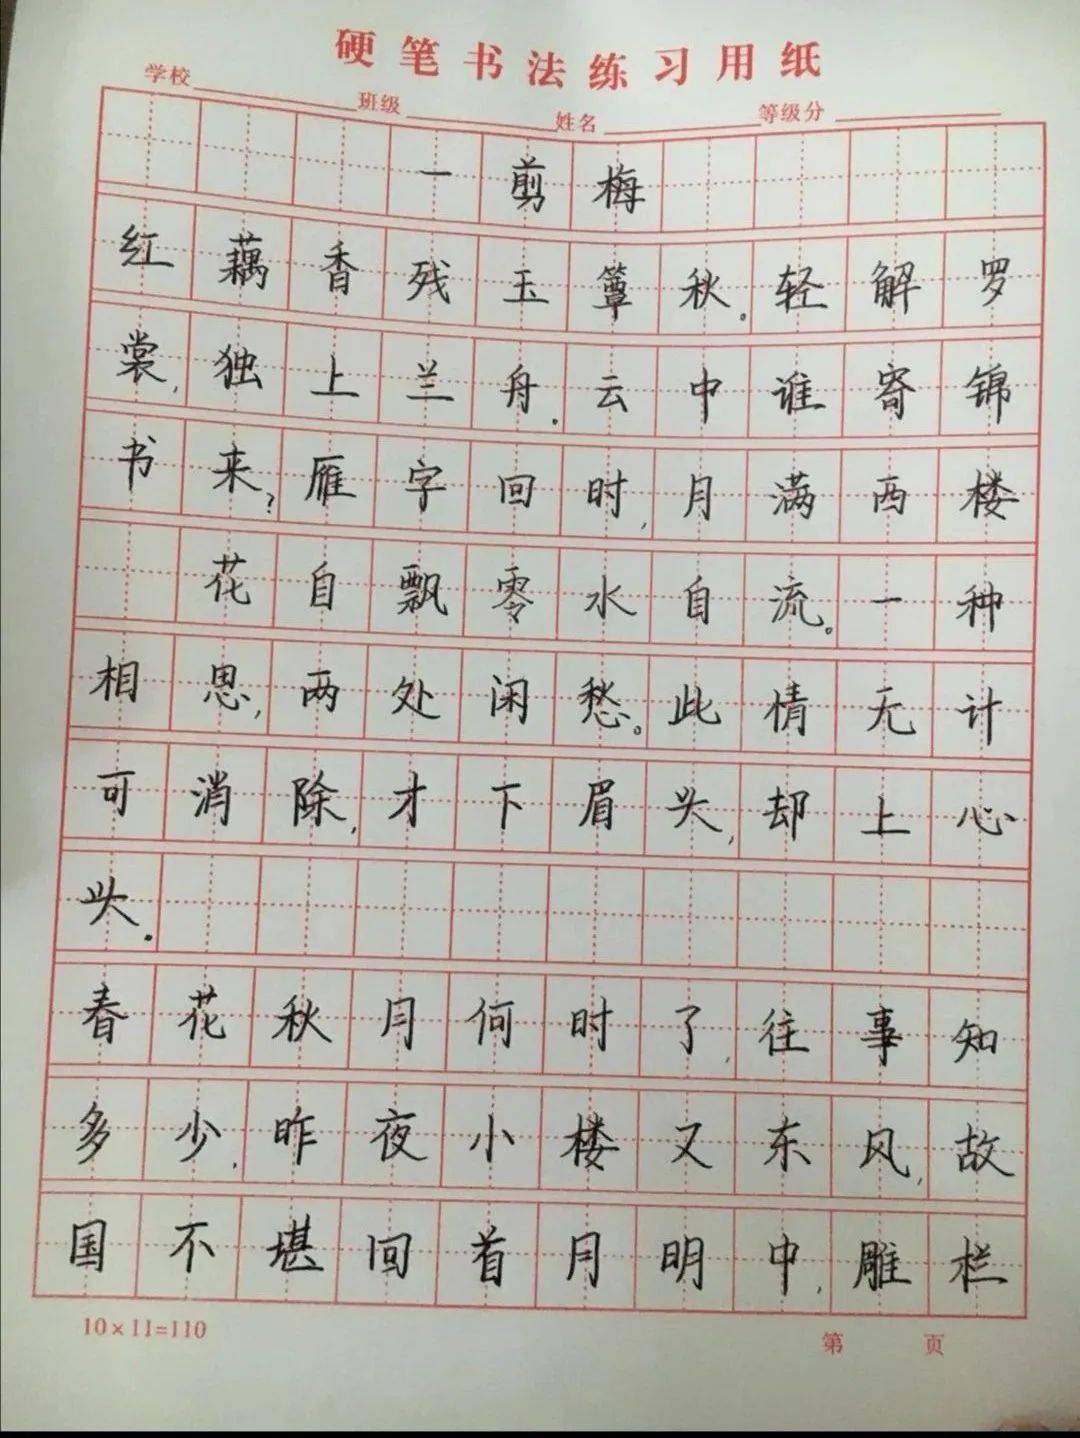 硬笔书法练习用纸
学校 班级 姓名 等级分
一剪梅
红藕香残玉簟秋。轻解罗
裳,独上兰舟.云中谁寄锦
书来?雁字回时,月满西楼
花自飘零水自流。一种
相思,两处闲愁。此情无计
可消除,才下眉头,却上心
头.
春花秋月何时了,往事知
多少,昨夜小楼又东风,故
国不堪回首月明中,雕栏
10×11=110
第 页